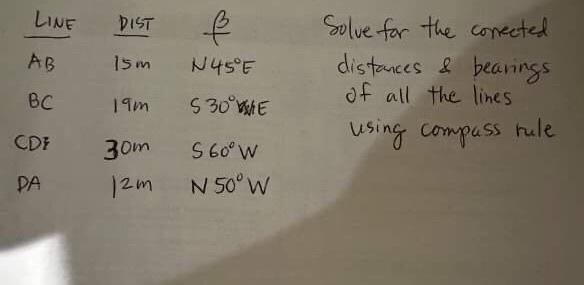 LINE DIST β Solve for the corrected
AB 15m N45°E distances & bearings
BC 19m S30°E of all the lines
using compass rule
CD 30m S60°W
DA 12m N50°W